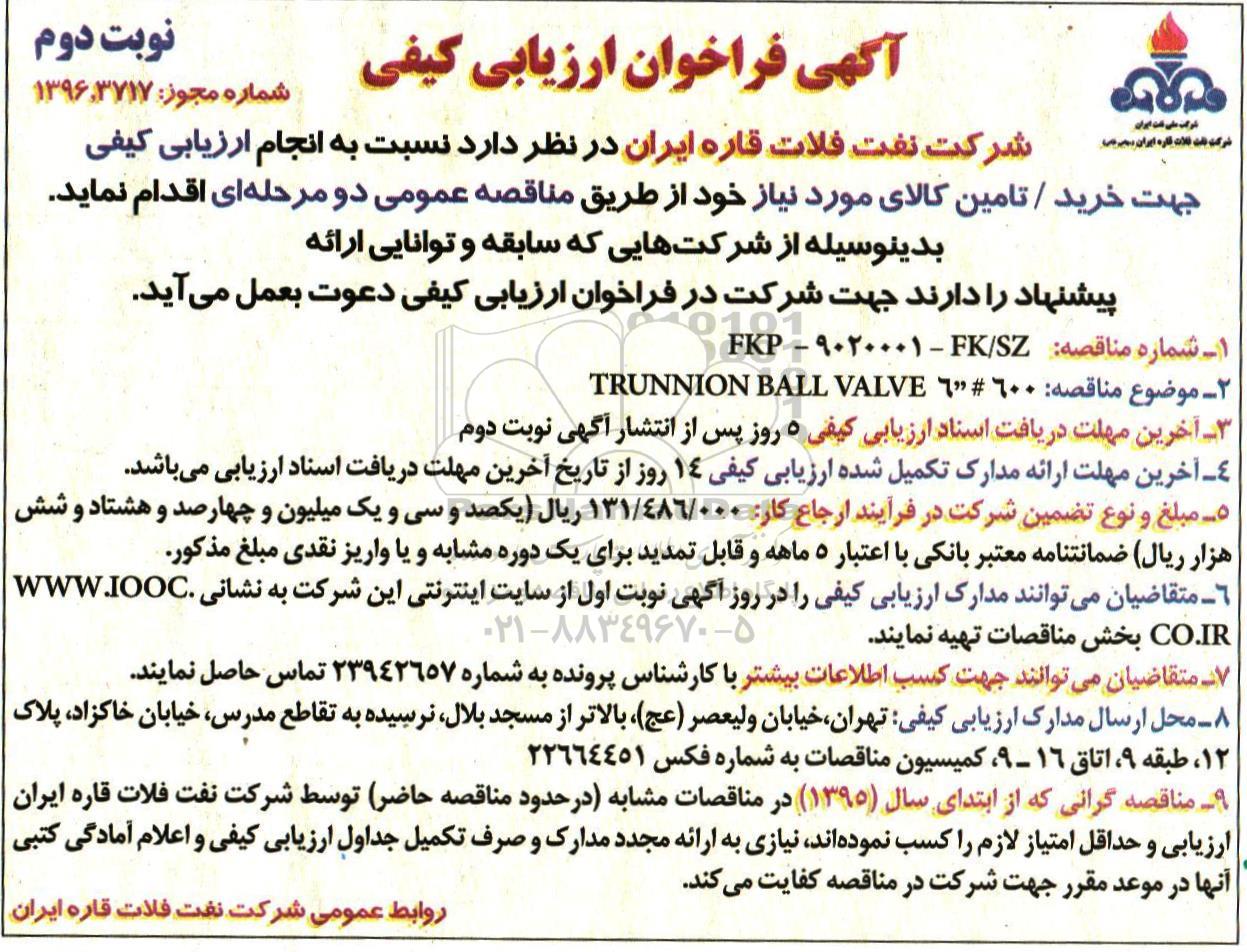 آگهی فراخوان ارزیابی کیفی
نوبت دوم
شماره مجوز: ۱۳۹۶,۳۷۱۷
شرکت ملی نفت ایران
شرکت نفت فلات قاره ایران (سهامی خاص)
شرکت نفت فلات قاره ایران در نظر دارد نسبت به انجام ارزیابی کیفی
جهت خرید / تامین کالای مورد نیاز خود از طریق مناقصه عمومی دو مرحله‌ای اقدام نماید.
بدینوسیله از شرکت‌هایی که سابقه و توانایی ارائه
پیشنهاد را دارند جهت شرکت در فراخوان ارزیابی کیفی دعوت بعمل می‌آید.
۱ـ شماره مناقصه: FKP – ۹۰۲۰۰۰۱ – FK/SZ
۲ـ موضوع مناقصه: TRUNNION BALL VALVE ۶” # ۶۰۰
۳ـ آخرین مهلت دریافت اسناد ارزیابی کیفی ۵ روز پس از انتشار آگهی نوبت دوم
۴ـ آخرین مهلت ارائه مدارک تکمیل شده ارزیابی کیفی ۱۴ روز از تاریخ آخرین مهلت دریافت اسناد ارزیابی می‌باشد.
۵ـ مبلغ و نوع تضمین شرکت در فرآیند ارجاع کار: ۱۳۱/۴۸۶/۰۰۰ ریال (یکصد و سی و یک میلیون و چهارصد و هشتاد و شش
هزار ریال) ضمانتنامه معتبر بانکی با اعتبار ۵ ماهه و قابل تمدید برای یک دوره مشابه و یا واریز نقدی مبلغ مذکور.
۶ـ متقاضیان می‌توانند مدارک ارزیابی کیفی را در روز آگهی نوبت اول از سایت اینترنتی این شرکت به نشانی WWW.IOOC.
CO.IR بخش مناقصات تهیه نمایند.
۰۲۱-۸۸۳۴۹۶۷۰-۵
۷ـ متقاضیان می‌توانند جهت کسب اطلاعات بیشتر با کارشناس پرونده به شماره ۲۳۹۴۲۶۵۷ تماس حاصل نمایند.
۸ـ محل ارسال مدارک ارزیابی کیفی: تهران،خیابان ولیعصر (عج)، بالاتر از مسجد بلال، نرسیده به تقاطع مدرس، خیابان خاکزاد، پلاک
۱۲، طبقه ۹، اتاق ۱۶ ـ ۹، کمیسیون مناقصات به شماره فکس ۲۲۶۶۴۴۵۱
۹ـ مناقصه گرانی که از ابتدای سال (۱۳۹۵) در مناقصات مشابه (درحدود مناقصه حاضر) توسط شرکت نفت فلات قاره ایران
ارزیابی و حداقل امتیاز لازم را کسب نموده‌اند، نیازی به ارائه مجدد مدارک و صرف تکمیل جداول ارزیابی کیفی و اعلام آمادگی کتبی
آنها در موعد مقرر جهت شرکت در مناقصه کفایت می‌کند.
روابط عمومی شرکت نفت فلات قاره ایران